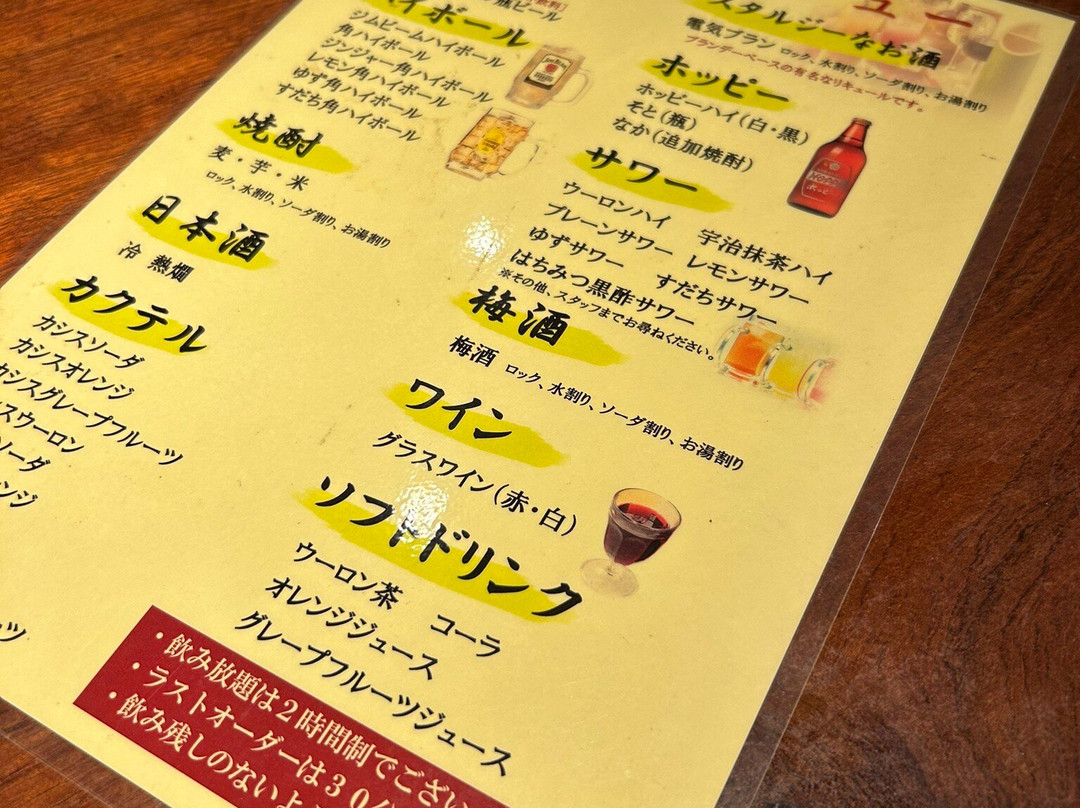 瓶ビール
ハイボール
ジムビームハイボール
角ハイボール
ジンジャー角ハイボール
レモン角ハイボール
ゆず角ハイボール
すだち角ハイボール
焼酎
麦・芋・米
ロック、水割り、ソーダ割り、お湯割り
日本酒
冷 熱燗
カクテル
カシスソーダ
カシスオレンジ
カシスグレープフルーツ
スウーロン
ソーダ
ンジ
ツ
ュー
スタルジーなお酒
電気ブラン ロック、水割り、ソーダ割り、お湯割り
ブランデーベースの有名なリキュールです。
ホッピー
ホッピーハイ(白・黒)
そと(瓶)
なか(追加焼酎)
サワー
ウーロンハイ 宇治抹茶ハイ
プレーンサワー レモンサワー
ゆずサワー すだちサワー
はちみつ黒酢サワー
※その他、スタッフまでお尋ねください。
梅酒
梅酒 ロック、水割り、ソーダ割り、お湯割り
ワイン
グラスワイン(赤・白)
ソフトドリンク
ウーロン茶 コーラ
オレンジジュース
グレープフルーツジュース
・飲み放題は2時間制でござい
・ラストオーダーは30
・飲み残しのないよ